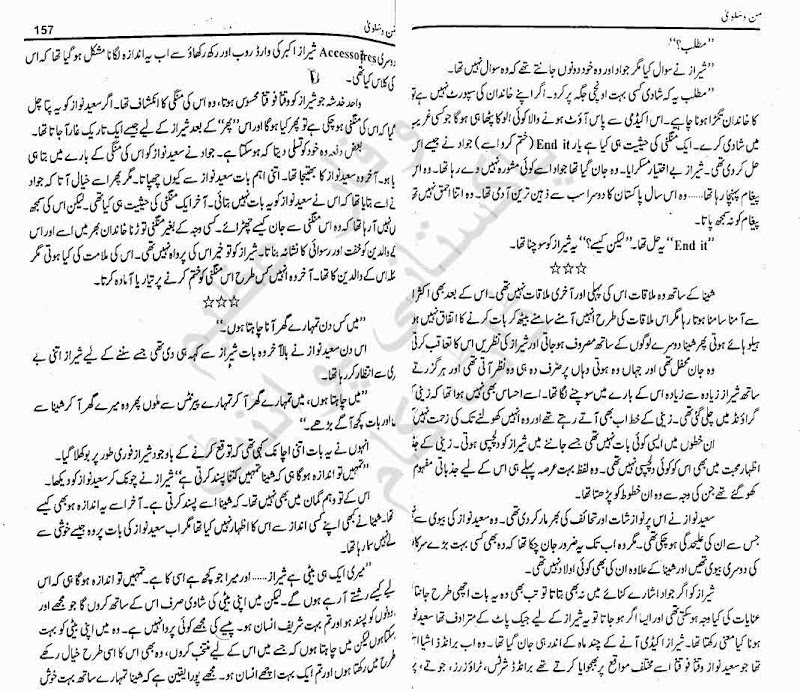 من و سلویٰ
”مطلب؟“
”شیراز نے سوال کیا مگر جواد اور وہ خود دونوں جانتے تھے کہ وہ سوال نہیں تھا۔
”مطلب یہ کہ شادی کسی بہت اونچی جگہ پر کرو۔ اگر اپنے خاندان کی سپورٹ نہیں ہے تو
کا خاندان تگڑا ہونا چاہیے۔ اس اکیڈمی سے پاس آؤٹ ہونے والا کوئی الو کا پٹھا ہی ہو گا جو کسی غریب
میں شادی کرے۔ ایک منگنی کی حیثیت ہی کیا ہے یار End it (ختم کرو اسے) جواد نے جیسے اس
حل کر دی تھی۔ شیراز بے اختیار مسکرایا۔ وہ جان گیا تھا جواد اسے کوئی مشورہ نہیں دے رہا تھا۔ وہ اس
پیغام پہنچا رہا تھا...... وہ اس سال پاکستان کا دوسرا سب سے ذہین ترین آدمی تھا۔ وہ اتنا احمق نہیں تھا
پیغام کو نہ سمجھ پاتا۔
”End it“ یہ حل تھا۔ ”لیکن کیسے؟“ یہ شیراز کو سوچنا تھا۔
☆☆☆
شینا کے ساتھ وہ ملاقات اس کی پہلی اور آخری ملاقات نہیں تھی۔ اس کے بعد بھی اکثر
سے آمنا سامنا ہوتا رہا مگر اس ملاقات کی طرح انہیں آمنے سامنے بیٹھ کر بات کرنے کا اتفاق نہیں ہو
ہیلو ہائے ہوتی پھر شینا دوسرے لوگوں کے ساتھ مصروف ہو جاتی اور شیراز کی نظریں اس کا تعاقب کرتی
وہ جانِ محفل تھی اور جہاں وہ ہوتی وہاں ہر طرف وہ ہی وہ نظر آتی تھی اور ہر گزرتے
ساتھ شیراز زیادہ سے زیادہ اس کے بارے میں سوچنے لگا تھا۔ اسے احساس بھی نہیں ہوا تھا کہ زینی
گراؤنڈ میں چلی گئی تھی۔ زینی کے خط اب بھی آتے رہتے تھے اور وہ انہیں کھولنے تک کی زحمت نہیں
ان خطوں میں ایسی کوئی بات نہیں تھی جسے جاننے میں شیراز کو دلچسپی ہوتی۔ زینی کے
اظہارِ محبت میں بھی اس کو کوئی دلچسپی نہیں تھی۔ وہ لفظ بہت عرصہ پہلے ہی اس کے لیے جذباتی مفہوم
کھو گئے تھے جن کی وجہ سے وہ ان خطوط کو پڑھتا تھا۔
سعید نواز نے اس پر نوازشات اور تحائف کی بھرمار کر دی تھی۔ وہ سعید نواز کی بیوی سے
جس سے ان کی علیحدگی ہو چکی تھی۔ مگر وہ اب تک یہ ضرور جان چکا تھا کہ وہ بھی کسی بہت بڑے
کی دوسری بیوی تھیں اور شینا کے علاوہ ان کی بھی کوئی اولاد نہیں تھی۔
شیراز کو اگر جواد اشارے کنائے میں نہ بھی بتاتا تو تب بھی وہ یہ بات اچھی طرح جانتا
عنایات کی کیا وجہ ہو سکتی تھی اور ایسا اگر ہو جاتا تو یہ شیراز کے لیے جیک پاٹ کے مترادف تھا سعید
ہونا کیا معنی رکھتا تھا۔ شیراز اکیڈمی آنے کے چند ماہ کے اندر ہی جان گیا تھا۔ وہ اب برانڈڈ اشیا
تھا جو سعید نواز وقتاً فوقتاً اسے مختلف مواقع پر بھجوایا کرتے تھے برانڈڈ شرٹس، ٹراؤزرز، جوتے،
من و سلویٰ 157
دوسری Accessories شیراز اکبر کی وارڈ روب اور رکھ رکھاؤ سے اب یہ اندازہ لگانا مشکل ہو گیا تھا کہ اس
کی کلاس کیا تھی۔
واحد خدشہ جو شیراز کو وقتاً فوقتاً محسوس ہوتا، وہ اس کی منگنی کا انکشاف تھا۔ اگر سعید نواز کو یہ پتا چل
گیا کہ اس کی منگنی ہو چکی ہے تو پھر کیا ہو گا اور اس ”پھر“ کے بعد شیراز کے لیے جیسے ایک تاریک غار آ جاتا تھا۔
بعض دفعہ وہ خود کو تسلی دیتا کہ ہو سکتا ہے۔ جواد نے سعید نواز کو اس کی منگنی کے بارے میں بتا ہی
دیا ہو۔ آخر وہ سعید نواز کا بھتیجا تھا۔ اتنی اہم بات سعید نواز سے کیوں چھپاتا۔ مگر پھر اسے خیال آتا کہ جواد
نے اسے بتایا تھا کہ اس نے سعید نواز کو یہ بات نہیں بتائی۔ آخر ایک منگنی کی حیثیت ہی کیا تھی۔ لیکن اس کی سمجھ
نہیں آ رہا تھا کہ وہ اس منگنی سے جان کیسے چھڑائے۔ کسی وجہ کے بغیر منگنی توڑنا خاندان بھر میں اسے اور اس
کے والدین کو خفت اور رسوائی کا نشانہ بناتا۔ شیراز کو تو خیر اس کی پرواہ نہیں تھی۔ اس کی ملامت کی کیا ہوتی مگر
مسئلہ اس کے والدین کا تھا۔ آخر وہ انہیں کس طرح اس منگنی کو ختم کرنے پر تیار یا آمادہ کرتا۔
☆☆☆
”میں کس دن تمہارے گھر آنا چاہتا ہوں۔“
اس دن سعید نواز نے بالآخر وہ بات شیراز سے کہہ ہی دی تھی جسے سننے کے لیے شیراز اتنی بے
صبری سے انتظار کر رہا تھا۔
”میں چاہتا ہوں، میں تمہارے گھر آ کر تمہارے پیرنٹس سے ملوں پھر وہ میرے گھر آ کر شینا سے
اور بات کچھ آگے بڑھے۔“
انہوں نے یہ بات اتنی اچانک کہی تھی کہ توقع کرنے کے باوجود شیراز فوری طور پر بوکھلا گیا۔
”تمہیں تو اندازہ ہو گا ہی کہ شینا تمہیں کتنا پسند کرتی ہے“ شیراز نے چونک کر سعید نواز کو دیکھا۔
اس کے تو وہم گمان میں بھی نہیں تھا۔ کہ شینا اسے پسند کرتی ہے۔ آخر اسے یہ اندازہ ہو بھی کیسے
تھا۔ شینا نے کبھی اپنے کسی انداز سے اس کا اظہار نہیں کیا تھا مگر اب سعید نواز کی بات پر وہ جیسے خوشی سے
نہیں سما رہا تھا۔
”میری ایک ہی بیٹی ہے شیراز...... اور میرا جو کچھ ہے اسی کا ہے۔ تمہیں تو اندازہ ہو گا ہی کہ اس
کے لیے کیسے رشتے آ رہے ہوں گے۔ لیکن میں اپنی بیٹی کی شادی صرف اس کے ساتھ کروں گا جو مجھے اور
دونوں کو پسند ہو اور تم بہت شریف انسان ہو۔ پیسے کی مجھے کوئی پروا نہیں ہے۔ وہ میں اپنی بیٹی کو بہت
سکتا ہوں لیکن میں چاہتا ہوں کہ جسے میں اس کے لیے منتخب کروں، وہ بھی اس کا اسی طرح خیال رکھے
میں رکھتا ہوں اور تم ایک بہت اچھے انسان ہو۔ مجھے پورا یقین ہے کہ شینا تمہارے ساتھ بہت خوش